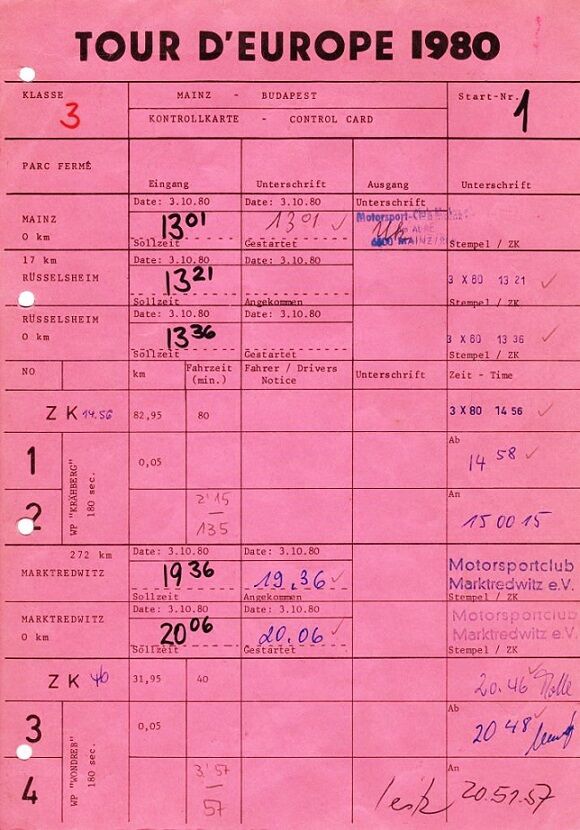 TOUR D'EUROPE 1980
KLASSE
3
MAINZ - BUDAPEST
KONTROLLKARTE - CONTROL CARD
Start-Nr.
1
PARC FERMÉ
Eingang
Unterschrift
Ausgang
Unterschrift
MAINZ
0 km
Date: 3.10.80
13 01
Sollzeit
Date: 3.10.80
13 01
Gestartet
Unterschrift
Motorsport-Club
6500 MAINZ
Stempel / ZK
17 km
RÜSSELSHEIM
Date: 3.10.80
13 21
Sollzeit
Date: 3.10.80
Angekommen
3 X 80 13 21
Stempel / ZK
RÜSSELSHEIM
0 km
Date: 3.10.80
13 36
Sollzeit
Date: 3.10.80
Gestartet
3 X 80 13 36
Stempel / ZK
NO
km
Fahrzeit (min.)
Fahrer / Drivers Notice
Unterschrift
Zeit - Time
ZK 14.56
82,95
80
3 X 80 14 56
1
WP "KRÄHBERG" 180 sec.
0,05
Ab
14 58
2
2'15
135
An
15 00 15
272 km
MARKTREDWITZ
Date: 3.10.80
19 36
Sollzeit
Date: 3.10.80
19.36
Angekommen
Motorsportclub
Marktredwitz e.V.
Stempel / ZK
MARKTREDWITZ
0 km
Date: 3.10.80
20 06
Sollzeit
Date: 3.10.80
20.06
Gestartet
Motorsportclub
Marktredwitz e.V.
Stempel / ZK
ZK
31,95
40
20.46
3
WP "WONDREB" 180 sec.
0,05
Ab
20 48
4
3'57
57
An
20.51.57